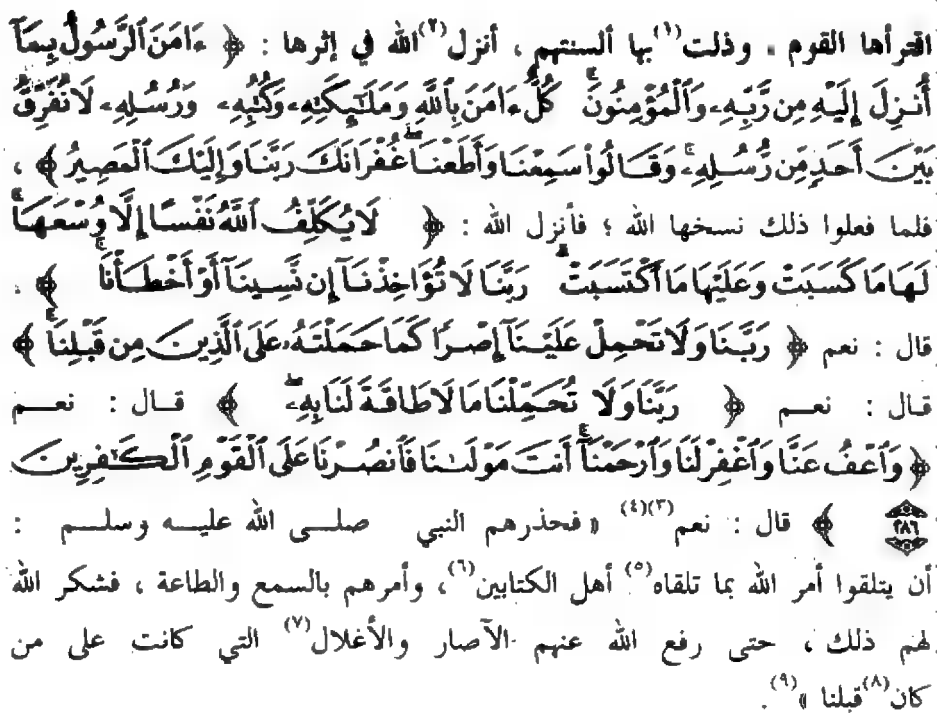 اقترأها القوم ، وذلت(١) بها ألسنتهم ، أنزل(٢) الله في إثرها : ﴿ ءَامَنَ ٱلرَّسُولُ بِمَآ
أُنزِلَ إِلَيْهِ مِن رَّبِّهِۦ وَٱلْمُؤْمِنُونَ ۚ كُلٌّ ءَامَنَ بِٱللَّهِ وَمَلَـٰٓئِكَتِهِۦ وَكُتُبِهِۦ وَرُسُلِهِۦ لَا نُفَرِّقُ
بَيْنَ أَحَدٍ مِّن رُّسُلِهِۦ ۚ وَقَالُوا۟ سَمِعْنَا وَأَطَعْنَا ۖ غُفْرَانَكَ رَبَّنَا وَإِلَيْكَ ٱلْمَصِيرُ ﴾ ،
فلما فعلوا ذلك نسخها الله ؛ فأنزل الله : ﴿ لَا يُكَلِّفُ ٱللَّهُ نَفْسًا إِلَّا وُسْعَهَا ۚ
لَهَا مَا كَسَبَتْ وَعَلَيْهَا مَا ٱكْتَسَبَتْ ۗ رَبَّنَا لَا تُؤَاخِذْنَآ إِن نَّسِينَآ أَوْ أَخْطَأْنَا ۚ ﴾ .
قال : نعم ﴿ رَبَّنَا وَلَا تَحْمِلْ عَلَيْنَآ إِصْرًا كَمَا حَمَلْتَهُۥ عَلَى ٱلَّذِينَ مِن قَبْلِنَا ۚ ﴾
قال : نعم ﴿ رَبَّنَا وَلَا تُحَمِّلْنَا مَا لَا طَاقَةَ لَنَا بِهِۦ ۖ ﴾ قال : نعم
﴿ وَٱعْفُ عَنَّا وَٱغْفِرْ لَنَا وَٱرْحَمْنَآ ۚ أَنتَ مَوْلَىٰنَا فَٱنصُرْنَا عَلَى ٱلْقَوْمِ ٱلْكَـٰفِرِينَ
٢٨٦ ﴾ قال : نعم(٣)(٤) « فحذرهم النبي صلى الله عليه وسلم :
أن يتلقوا أمر الله بما تلقاه(٥) أهل الكتابين(٦)، وأمرهم بالسمع والطاعة ، فشكر الله
لهم ذلك ، حتى رفع الله عنهم الآصار والأغلال(٧) التي كانت على من
كان(٨) قبلنا »(٩).